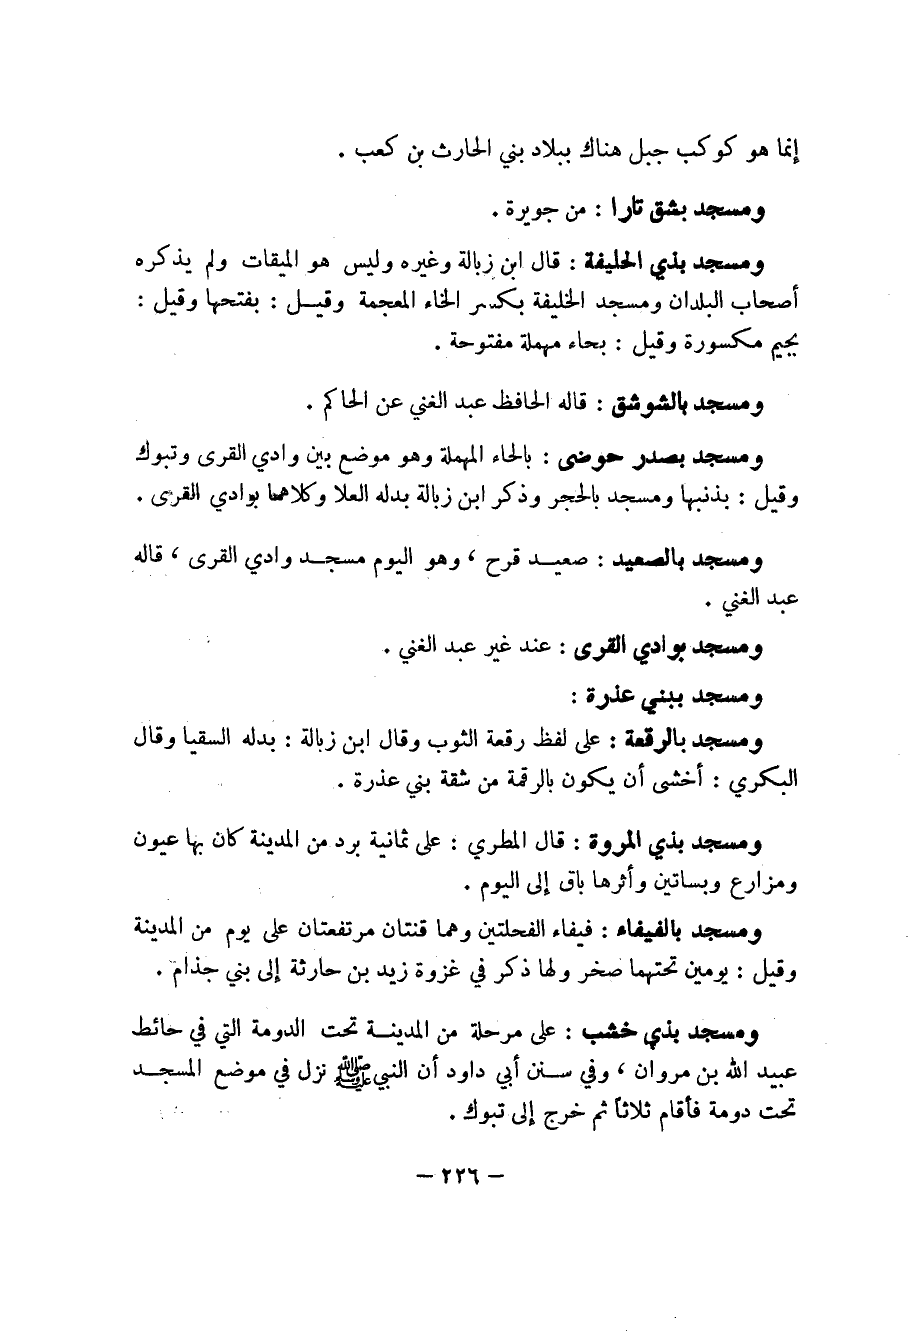 إنما هو كوكب جبل هناك ببلاد بني الحارث بن كعب .
ومسجد بشق تارا : من جويرة .
ومسجد بذي الحليفة : قال ابن زبالة وغيره وليس هو الميقات ولم يذكره
أصحاب البلدان ومسجد الخليفة بكسر الخاء المعجمة وقيل : بفتحها وقيل :
بجيم مكسورة وقيل : بحاء مهملة مفتوحة .
ومسجد بالشوشق : قاله الحافظ عبد الغني عن الحاكم .
ومسجد بصدر حوضى : بالحاء المهملة وهو موضع بين وادي القرى وتبوك
وقيل : بذنبها ومسجد بالحجر وذكر ابن زبالة بدله العلا وكلاهما بوادي القرى .
ومسجد بالصعيد : صعيد قرح ، وهو اليوم مسجد وادي القرى ، قاله
عبد الغني .
ومسجد بوادي القرى : عند غير عبد الغني .
ومسجد ببني عذرة :
ومسجد بالرقعة : على لفظ رقعة الثوب وقال ابن زبالة : بدله السقيا وقال
البكري : أخشى أن يكون بالرقمة من شقة بني عذرة .
ومسجد بذي المروة : قال المطري : على ثمانية برد من المدينة كان بها عيون
ومزارع وبساتين وأثرها باق إلى اليوم .
ومسجد بالفيفاء : فيفاء الفحلتين وهما قنتان مرتفعتان على يوم من المدينة
وقيل : يومين تحتهما صخر ولها ذكر في غزوة زيد بن حارثة إلى بني جذام .
ومسجد بذي خشب : على مرحلة من المدينة تحت الدومة التي في حائط
عبيد الله بن مروان ، وفي سنن أبي داود أن النبي ﷺ نزل في موضع المسجد
تحت دومة فأقام ثلاثاً ثم خرج إلى تبوك .
– ٢٢٦ –